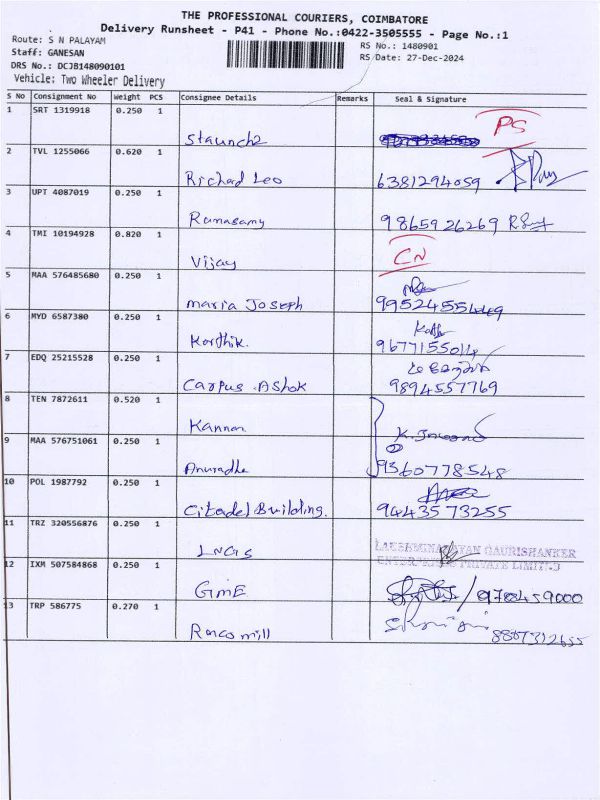 THE PROFESSIONAL COURIERS, COIMBATORE
Delivery Runsheet - P41 - Phone No.:0422-3505555 - Page No.:1
Route: S N PALAYAM
RS No.: 1480901
Staff: GANESAN
RS Date: 27-Dec-2024
DRS No.: DCJB148090101
Vehicle: Two Wheeler Delivery
S No Consignment No Weight PCS Consignee Details Remarks Seal & Signature
1 SRT 1319918 0.250 1
PS
Staunchz
2 TVL 1255066 0.620 1
Richad Leo 6381294059
3 UPT 4087019 0.250 1
Ramasamy 9865926269
4 TMI 10194928 0.820 1
CN
Vijay
5 MAA 576485680 0.250 1
maria Joseph
6 MYD 6587380 0.250 1
Karthik. 9677155014
7 EDQ 25215528 0.250 1
Carpus Ashok 9894557769
8 TEN 7872611 0.520 1
Kannan
9 MAA 576751061 0.250 1
Anuradha 9360778548
10 POL 1987792 0.250 1
Citadel Building. 9443573255
11 TRZ 320556876 0.250 1
LNGS
LAKSHMINARAYAN GAURISHANKER
ENTERPRISES PRIVATE LIMITED
12 IXM 507584868 0.250 1
GIME
13 TRP 586775 0.270 1
Roacomill 8807312655